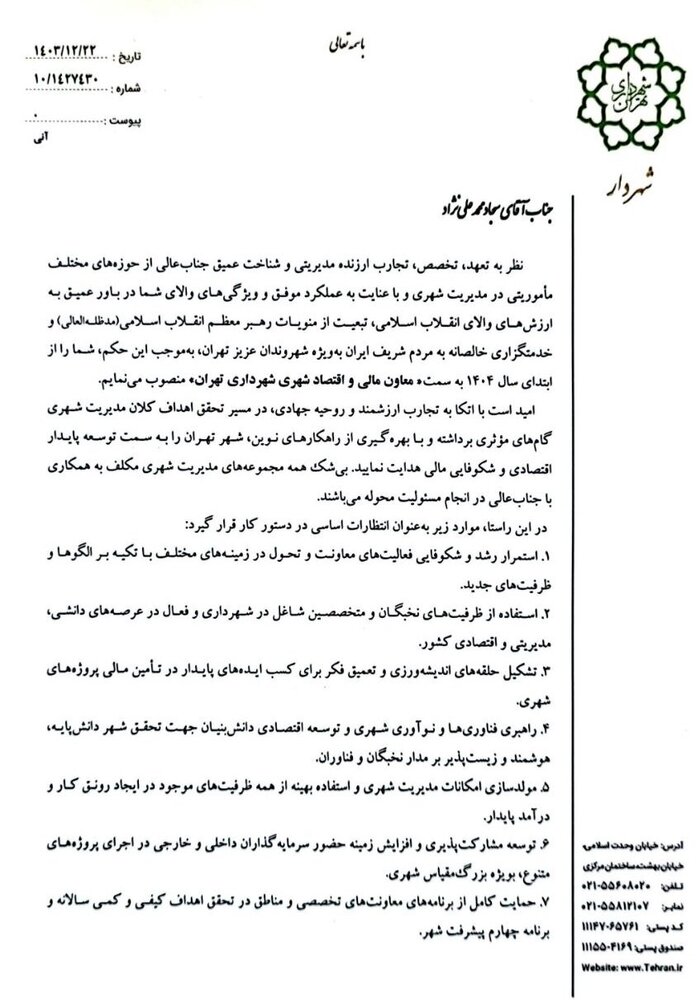 باسمه تعالی
تاریخ : ۱۴۰۳/۱۲/۲۲
شماره : ۱۰/۱۴۲۷۴۳۰
پیوست : ۰
آنی
شهرداری تهران
شهردار
جناب آقای سجاد محمدعلی نژاد
نظر به تعهد، تخصص، تجارب ارزنده مدیریتی و شناخت عمیق جناب‌عالی از حوزه‌های مختلف
مأموریتی در مدیریت شهری و با عنایت به عملکرد موفق و ویژگی‌های والای شما در باور عمیق به
ارزش‌های والای انقلاب اسلامی، تبعیت از منویات رهبر معظم انقلاب اسلامی(مدظله‌العالی) و
خدمتگزاری خالصانه به مردم شریف ایران به‌ویژه شهروندان عزیز تهران، به‌موجب این حکم، شما را از
ابتدای سال ۱۴۰۴ به سمت« معاون مالی و اقتصاد شهری شهرداری تهران» منصوب می‌نمایم.
امید است با اتکا به تجارب ارزشمند و روحیه جهادی، در مسیر تحقق اهداف کلان مدیریت شهری
گام‌های مؤثری برداشته و با بهره‌گیری از راهکارهای نوین، شهر تهران را به سمت توسعه پایدار
اقتصادی و شکوفایی مالی هدایت نمایید. بی‌شک همه مجموعه‌های مدیریت شهری مکلف به همکاری
با جناب‌عالی در انجام مسئولیت محوله می‌باشند.
در این راستا، موارد زیر به‌عنوان انتظارات اساسی در دستور کار قرار گیرد:
۱. استمرار رشد و شکوفایی فعالیت‌های معاونت و تحول در زمینه‌های مختلف با تکیه بر الگوها و
ظرفیت‌های جدید.
۲. استفاده از ظرفیت‌های نخبگان و متخصصین شاغل در شهرداری و فعال در عرصه‌های دانشی،
مدیریتی و اقتصادی کشور.
۳. تشکیل حلقه‌های اندیشه‌ورزی و تعمیق فکر برای کسب ایده‌های پایدار در تأمین مالی پروژه‌های
شهری.
۴. راهبری فناوری‌ها و نوآوری شهری و توسعه اقتصادی دانش‌بنیان جهت تحقق شهر دانش‌پایه،
هوشمند و زیست‌پذیر بر مدار نخبگان و فناوران.
۵. مولدسازی امکانات مدیریت شهری و استفاده بهینه از همه ظرفیت‌های موجود در ایجاد رونق کار و
درآمد پایدار.
۶. توسعه مشارکت‌پذیری و افزایش زمینه حضور سرمایه‌گذاران داخلی و خارجی در اجرای پروژه‌های
متنوع، بویژه بزرگ‌مقیاس شهری.
۷. حمایت کامل از برنامه‌های معاونت‌های تخصصی و مناطق در تحقق اهداف کیفی و کمی سالانه و
برنامه چهارم پیشرفت شهر.
آدرس: خیابان وحدت اسلامی،
خیابان بهشت، ساختمان مرکزی
تلفن: ۰۲۱-۵۵۶۰۸۰۲۰
نمابر: ۰۲۱-۵۵۸۱۲۱۰۷
کد پستی: ۱۱۱۴۷-۶۵۷۶۱
صندوق پستی: ۱۱۱۵۵-۴۱۶۹
Website: www.Tehran.ir